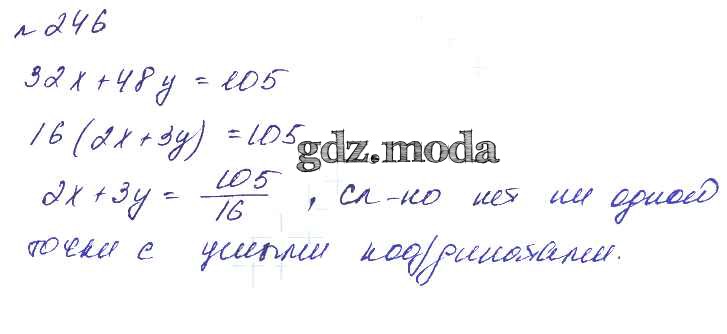 № 246
32x + 48y = 105
16(2x + 3y) = 105
gdz.moda
2x + 3y = 105/16 , сл-но нет ни одной
точки с целыми координатами.